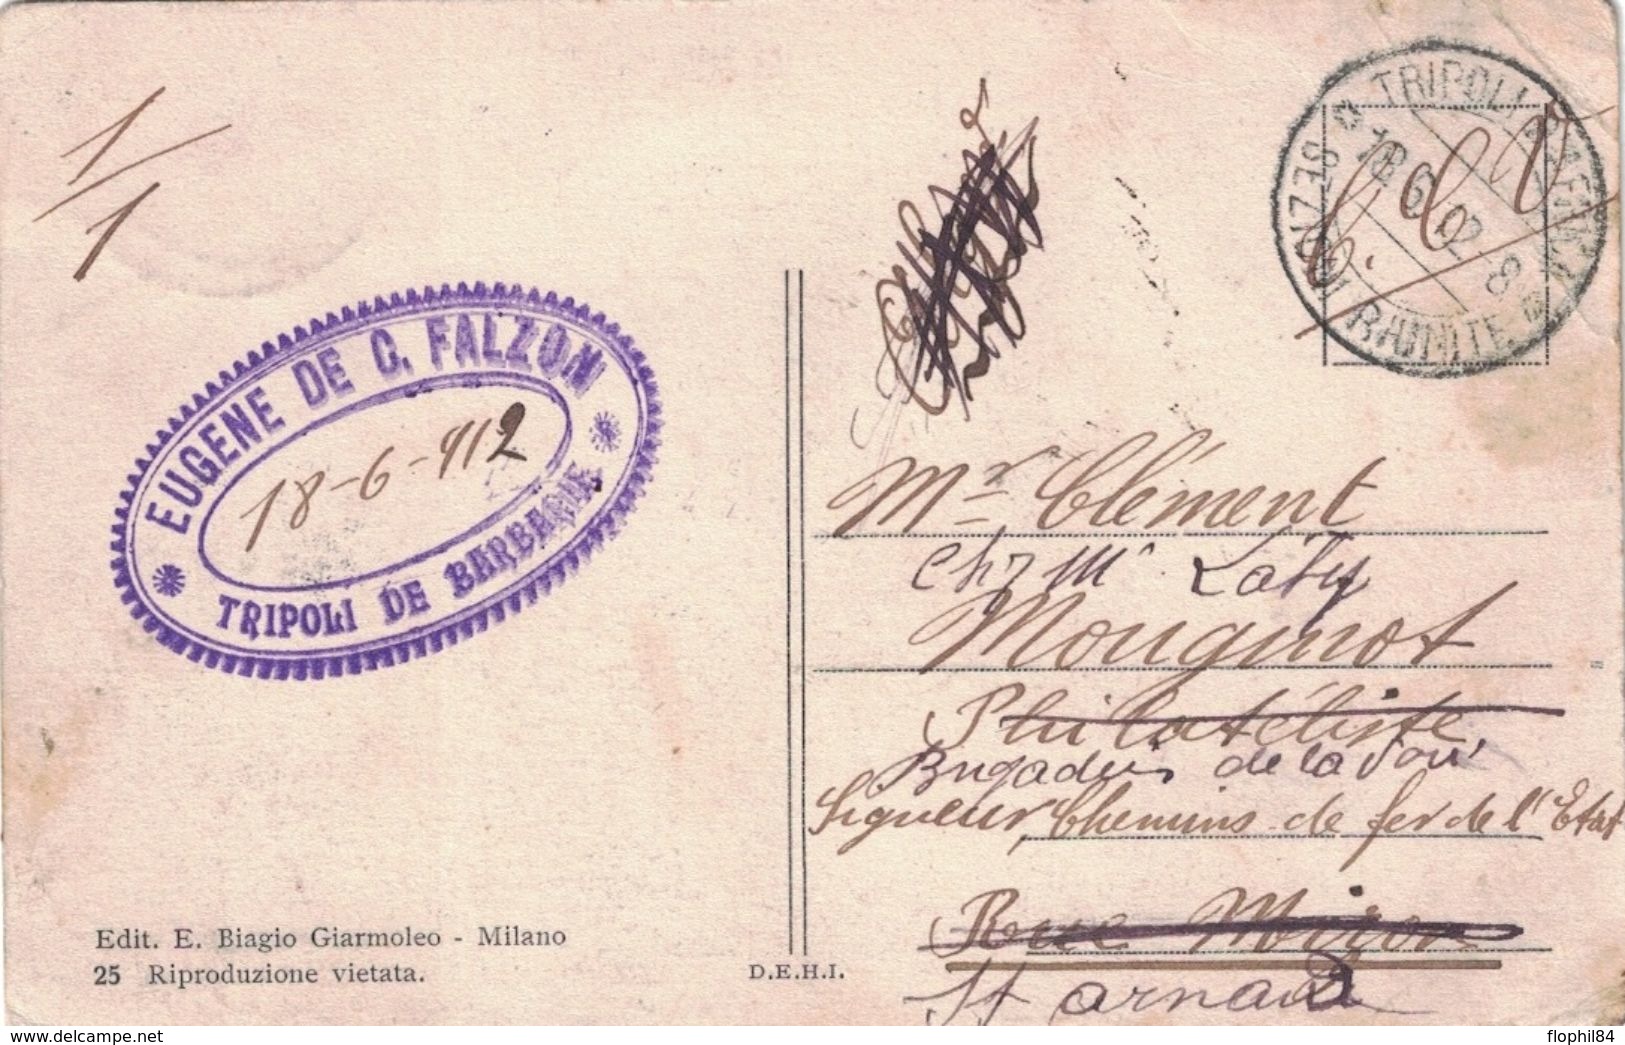 1/1
TRIPOLI D'AFRICA
18 6 12 8
SEZIONI RIUNITE
EUGENE DE C. FALZON
18-6-912
TRIPOLI DE BARBARIE
Mr Clément
chz Mr Laty
Mouginot
Philatéliste
Brigadeir de la voie
Ligneur, Chemins de fer de l'Etat
Rue Miron
St arnaud
Edit. E. Biagio Giarmoleo - Milano
25 Riproduzione vietata.
D.E.H.I.
https://www.delcampe.net
flophil84